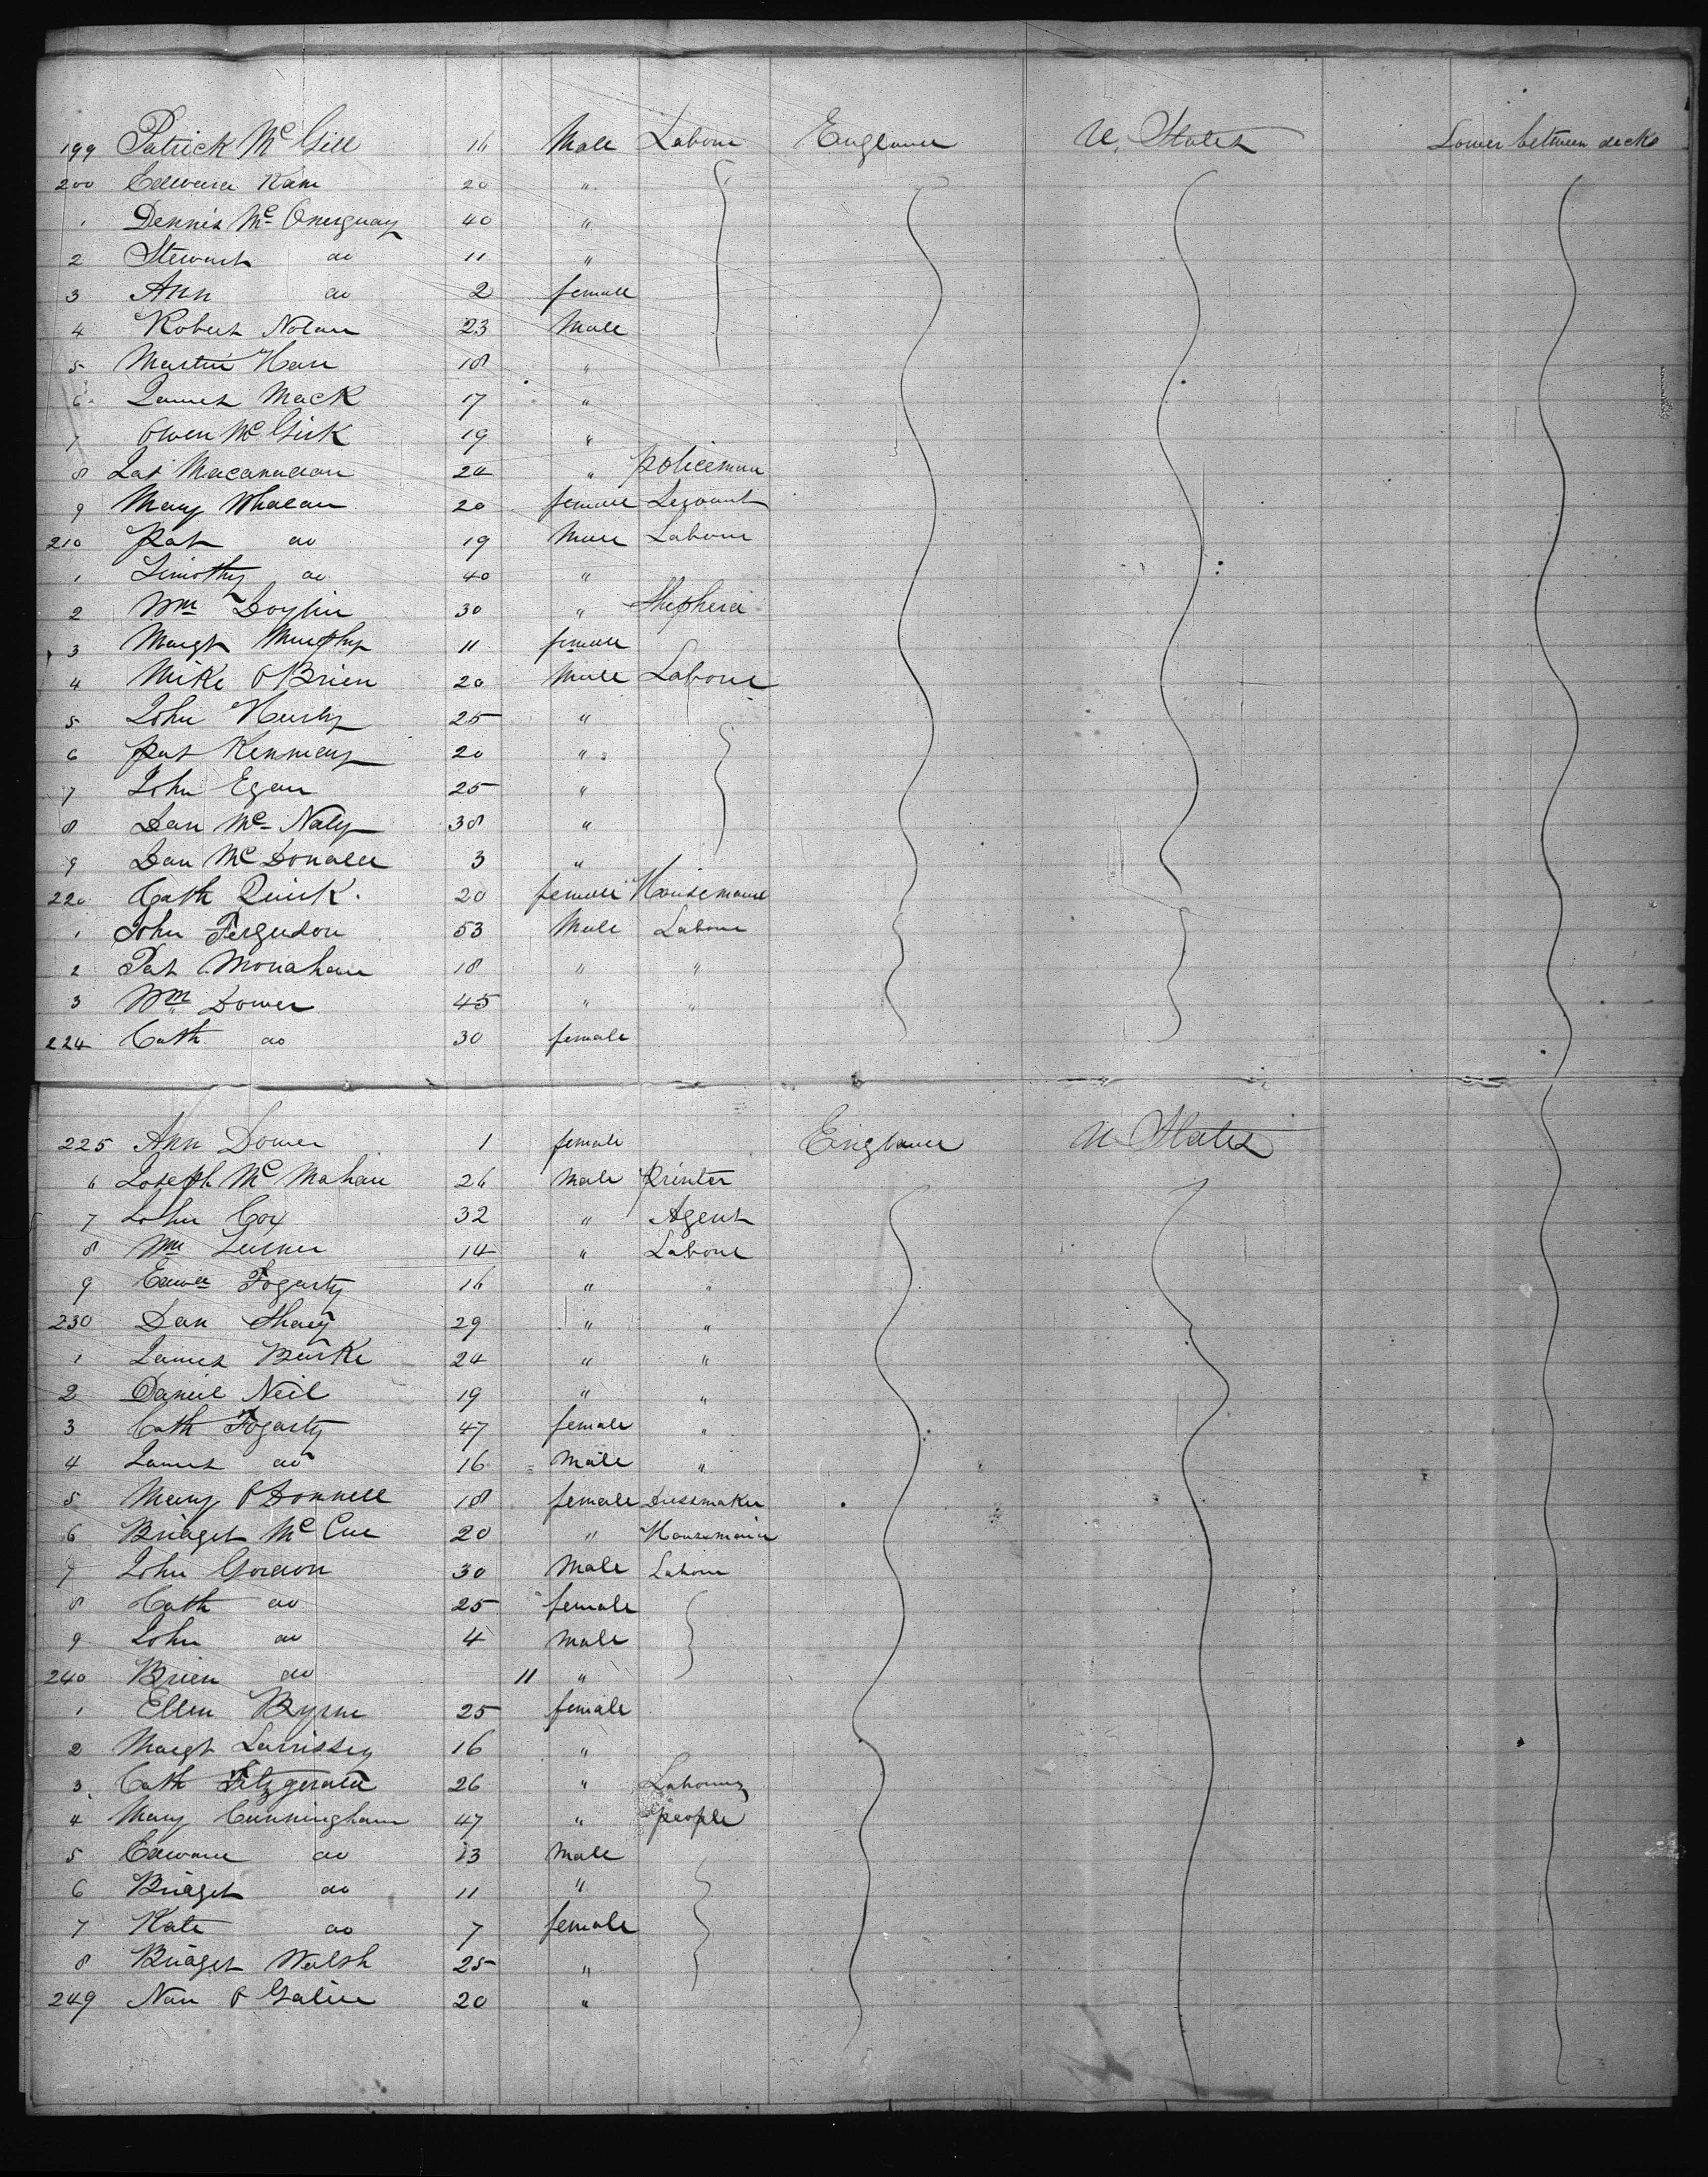 199 Patrick McGill 16 Male Labour England U. States Lower between decks
200 Edward Kane 20 "
1 Dennis Mc 40 "
2 Stewart do 11 "
3 Ann do 2 female
4 Robert Nolan 23 Male
5 Martin Hare 18 "
6 James Mack 17 "
7 Owen McGirk 19 "
8 24 " policeman
9 Mary Whalan 20 female Servant
210 Pat do 19 Male Labour
1 Timothy do 40 "
2 Wm 30 " Shepherd
3 Margt Murphy 11 female
4 Mike O'Brien 20 Male Labour
5 John 25 "
6 Pat 20 "
7 John Egan 25 "
8 Dan McNaly 38 "
9 Dan McDonald 3 "
220 Cath Quirk 20 female Housemaid
1 John Ferguson 53 Male Labour
2 Pat Monahan 18 " "
3 Wm Dower 45 " "
224 Cath do 30 female
225 Ann Dower 1 female England U States
6 Joseph McMahan 26 Male Printer
7 John Cox 32 " Agent
8 Wm 14 " Labour
9 Edwd Fogarty 16 " "
230 Dan 29 " "
1 James Burke 24 " "
2 Daniel Neil 19 " "
3 Cath Fogarty 47 female "
4 James do 16 Male "
5 Mary O'Donnell 18 female Dressmaker
6 Bridget McCue 20 " Housemaid
7 John Gordon 30 Male Labour
8 Cath do 25 female
9 John do 4 Male
240 Brien do 11 "
1 Ellen Byrne 25 female
2 Margt 16 "
3 Cath Fitzgerald 26 " Labouring
4 Mary Cunningham 47 " people
5 Edward do 13 Male
6 Bridget do 11 "
7 Kate do 7 female
8 Bridget Walsh 25 "
249 20 "